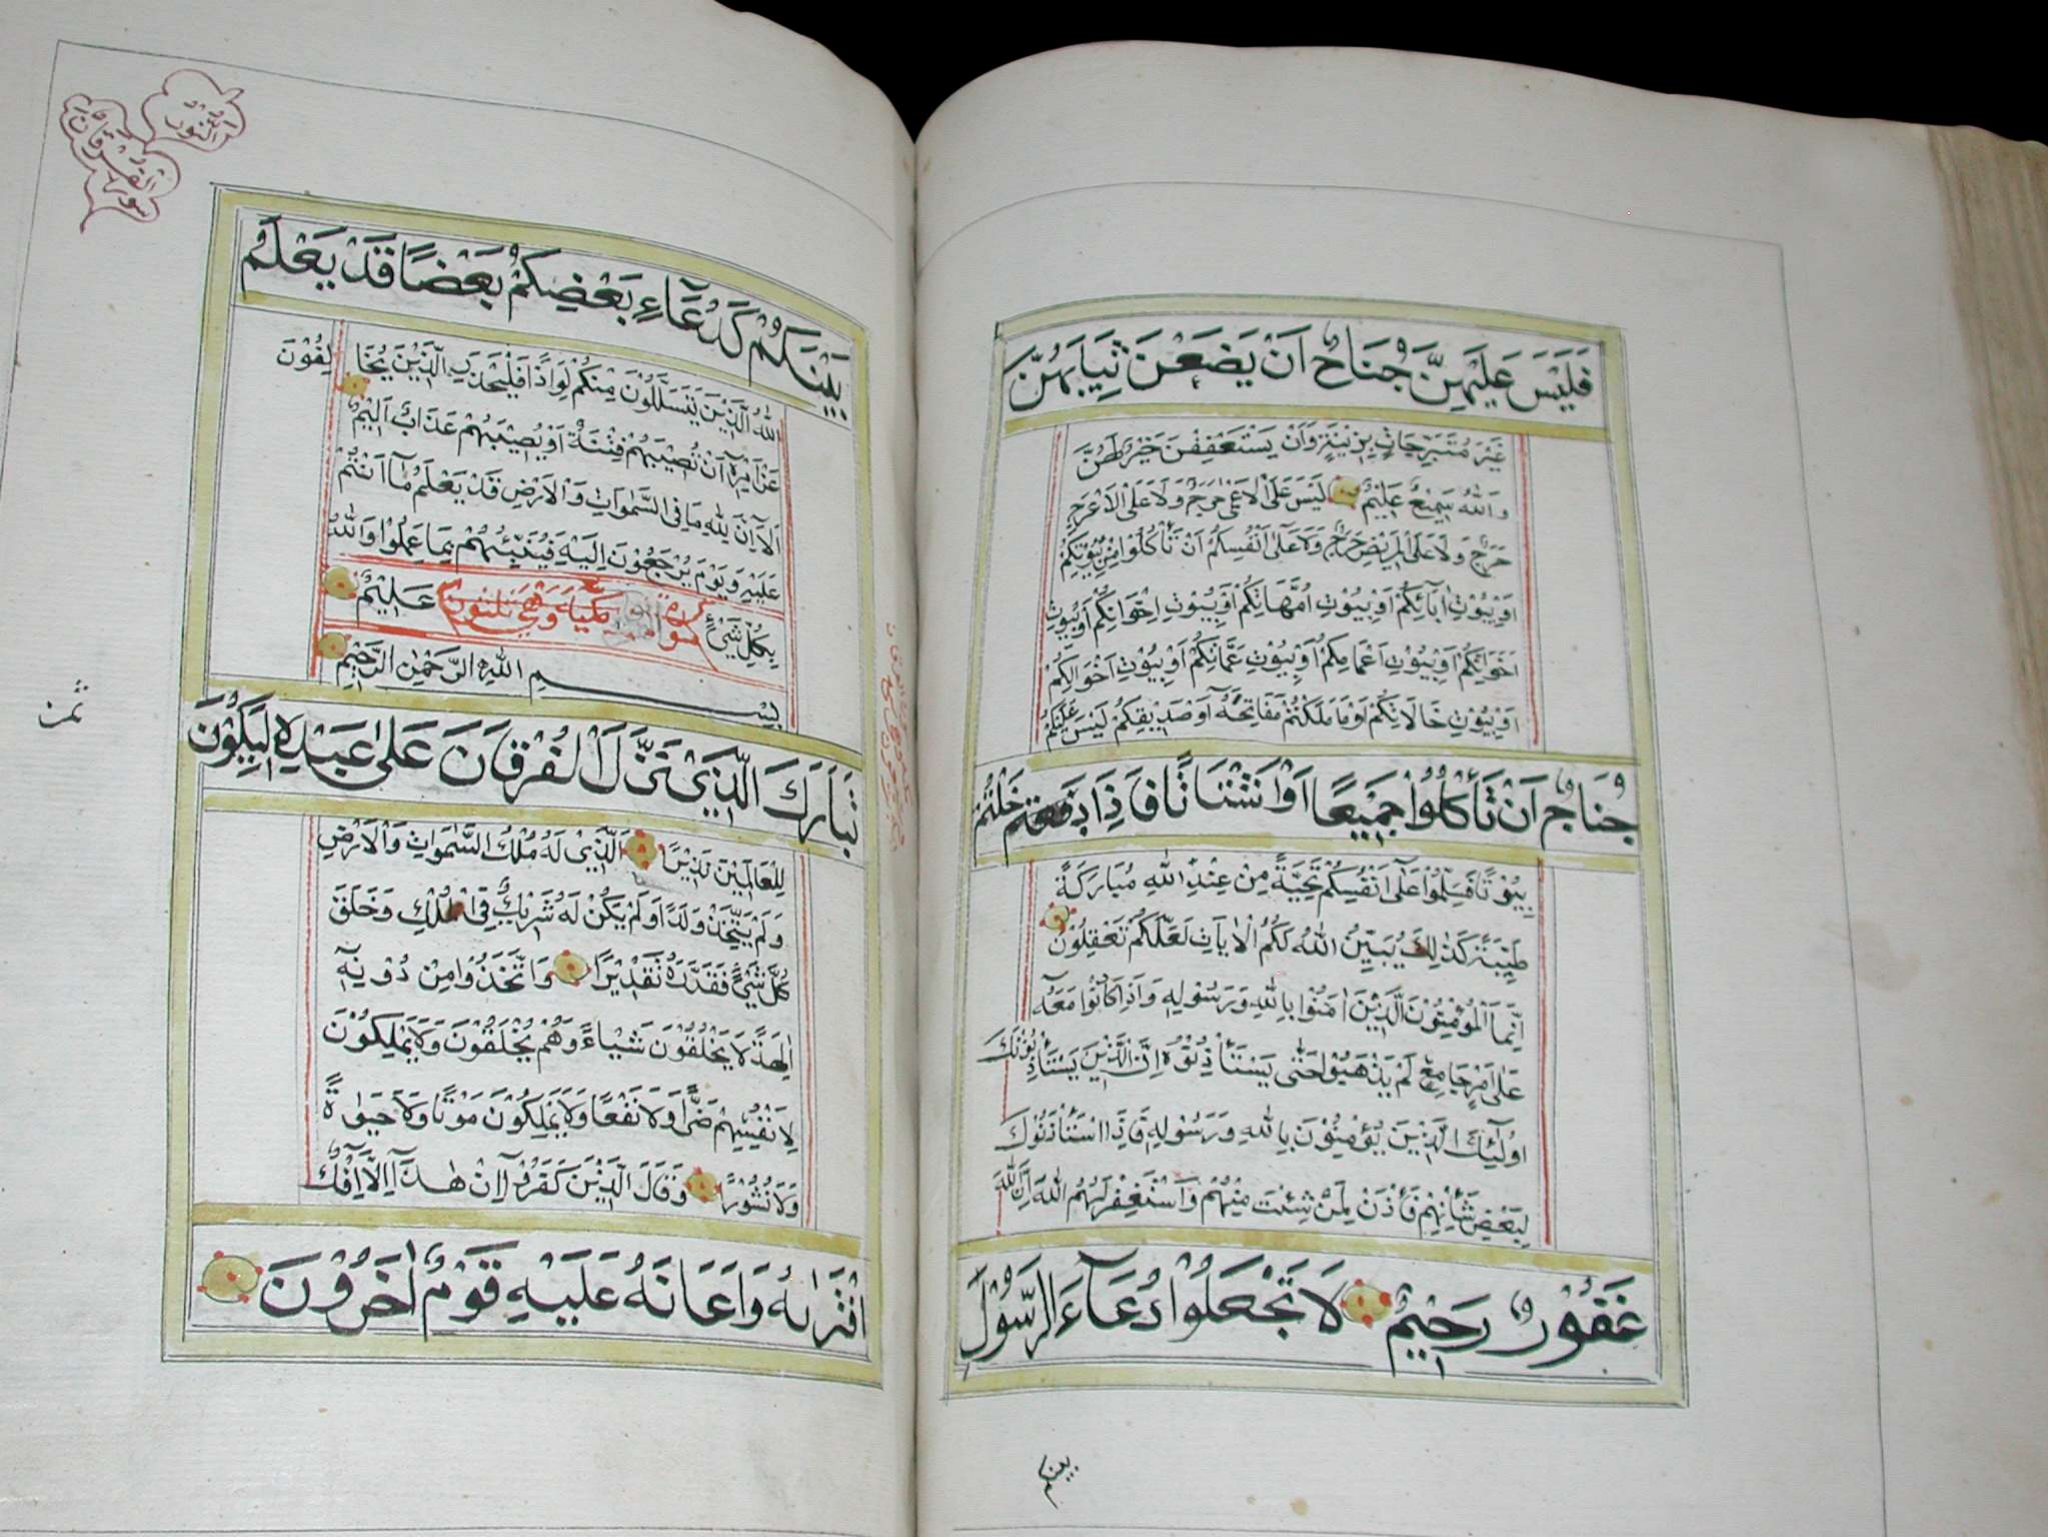 فَلَيْسَ عَلَيْهِنَّ جُنَاحٌ اَنْ يَضَعْنَ ثِيَابَهُنَّ
غَيْرَ مُتَبَرِّجَاتٍ بِزِيْنَةٍ وَاَنْ يَسْتَعْفِفْنَ خَيْرٌ لَهُنَّ
وَاللهُ سَمِيْعٌ عَلِيْمٌ لَيْسَ عَلَى الْاَعْمٰى حَرَجٌ وَلَا عَلَى الْاَعْرَجِ
حَرَجٌ وَلَا عَلَى الْمَرِيْضِ حَرَجٌ وَلَا عَلٰى اَنْفُسِكُمْ اَنْ تَأْكُلُوا مِنْ بُيُوْتِكُمْ
اَوْ بُيُوْتِ اٰبَآئِكُمْ اَوْ بُيُوْتِ اُمَّهَاتِكُمْ اَوْ بُيُوْتِ اِخْوَانِكُمْ اَوْ بُيُوْتِ
اَخَوَاتِكُمْ اَوْ بُيُوْتِ اَعْمَامِكُمْ اَوْ بُيُوْتِ عَمَّاتِكُمْ اَوْ بُيُوْتِ اَخْوَالِكُمْ
اَوْ بُيُوْتِ خَالَاتِكُمْ اَوْ مَا مَلَكْتُمْ مَفَاتِحَهُٓ اَوْ صَدِيْقِكُمْ لَيْسَ عَلَيْكُمْ
جُنَاحٌ اَنْ تَأْكُلُوْا جَمِيْعًا اَوْ اَشْتَاتًا فَاِذَا دَخَلْتُمْ
بُيُوْتًا فَسَلِّمُوْا عَلٰٓى اَنْفُسِكُمْ تَحِيَّةً مِنْ عِنْدِ اللهِ مُبَارَكَةً
طَيِّبَةً كَذٰلِكَ يُبَيِّنُ اللهُ لَكُمُ الْاٰيَاتِ لَعَلَّكُمْ تَعْقِلُوْنَ
اِنَّمَا الْمُؤْمِنُوْنَ الَّذِيْنَ اٰمَنُوْا بِاللهِ وَرَسُوْلِهٖ وَاِذَا كَانُوْا مَعَهُ
عَلٰٓى اَمْرٍ جَامِعٍ لَمْ يَذْهَبُوْا حَتّٰى يَسْتَأْذِنُوْهُ اِنَّ الَّذِيْنَ يَسْتَأْذِنُوْنَكَ
اُولٰٓئِكَ الَّذِيْنَ يُؤْمِنُوْنَ بِاللهِ وَرَسُوْلِهٖ فَاِذَا اسْتَأْذَنُوْكَ
لِبَعْضِ شَأْنِهِمْ فَأْذَنْ لِمَنْ شِئْتَ مِنْهُمْ وَاسْتَغْفِرْ لَهُمُ اللهَ اِنَّ اللهَ
غَفُوْرٌ رَحِيْمٌ لَا تَجْعَلُوْا دُعَآءَ الرَّسُوْلِ
بينكم
النُّوْرُ
سورة الْفُرْقَان
بَيْنَكُمْ كَدُعَآءِ بَعْضِكُمْ بَعْضًا قَدْ يَعْلَمُ
اللهُ الَّذِيْنَ يَتَسَلَّلُوْنَ مِنْكُمْ لِوَاذًا فَلْيَحْذَرِ الَّذِيْنَ يُخَالِفُوْنَ
عَنْ اَمْرِهٖٓ اَنْ تُصِيْبَهُمْ فِتْنَةٌ اَوْ يُصِيْبَهُمْ عَذَابٌ اَلِيْمٌ
اَلَآ اِنَّ لِلّٰهِ مَا فِى السَّمٰوَاتِ وَالْاَرْضِ قَدْ يَعْلَمُ مَآ اَنْتُمْ
عَلَيْهِ وَيَوْمَ يُرْجَعُوْنَ اِلَيْهِ فَيُنَبِّئُهُمْ بِمَا عَمِلُوْا وَاللهُ
بِكُلِّ شَيْءٍ عَلِيْمٌ
سورة مكية وهى
بِسْمِ اللهِ الرَّحْمٰنِ الرَّحِيْمِ
تَبَارَكَ الَّذِيْ نَزَّلَ الْفُرْقَانَ عَلٰى عَبْدِهٖ لِيَكُوْنَ
لِلْعَالَمِيْنَ نَذِيْرًا الَّذِيْ لَهُ مُلْكُ السَّمٰوَاتِ وَالْاَرْضِ
وَلَمْ يَتَّخِذْ وَلَدًا وَلَمْ يَكُنْ لَهُ شَرِيْكٌ فِى الْمُلْكِ وَخَلَقَ
كُلَّ شَيْءٍ فَقَدَّرَهُ تَقْدِيْرًا وَاتَّخَذُوْا مِنْ دُوْنِهٖٓ
اٰلِهَةً لَا يَخْلُقُوْنَ شَيْـًٔا وَهُمْ يُخْلَقُوْنَ وَلَا يَمْلِكُوْنَ
لِاَنْفُسِهِمْ ضَرًّا وَلَا نَفْعًا وَلَا يَمْلِكُوْنَ مَوْتًا وَلَا حَيٰوةً
وَلَا نُشُوْرًا وَقَالَ الَّذِيْنَ كَفَرُوْٓا اِنْ هٰذَآ اِلَّآ اِفْكٌ
افْتَرٰىهُ وَاَعَانَهُ عَلَيْهِ قَوْمٌ اٰخَرُوْنَ
ثمن